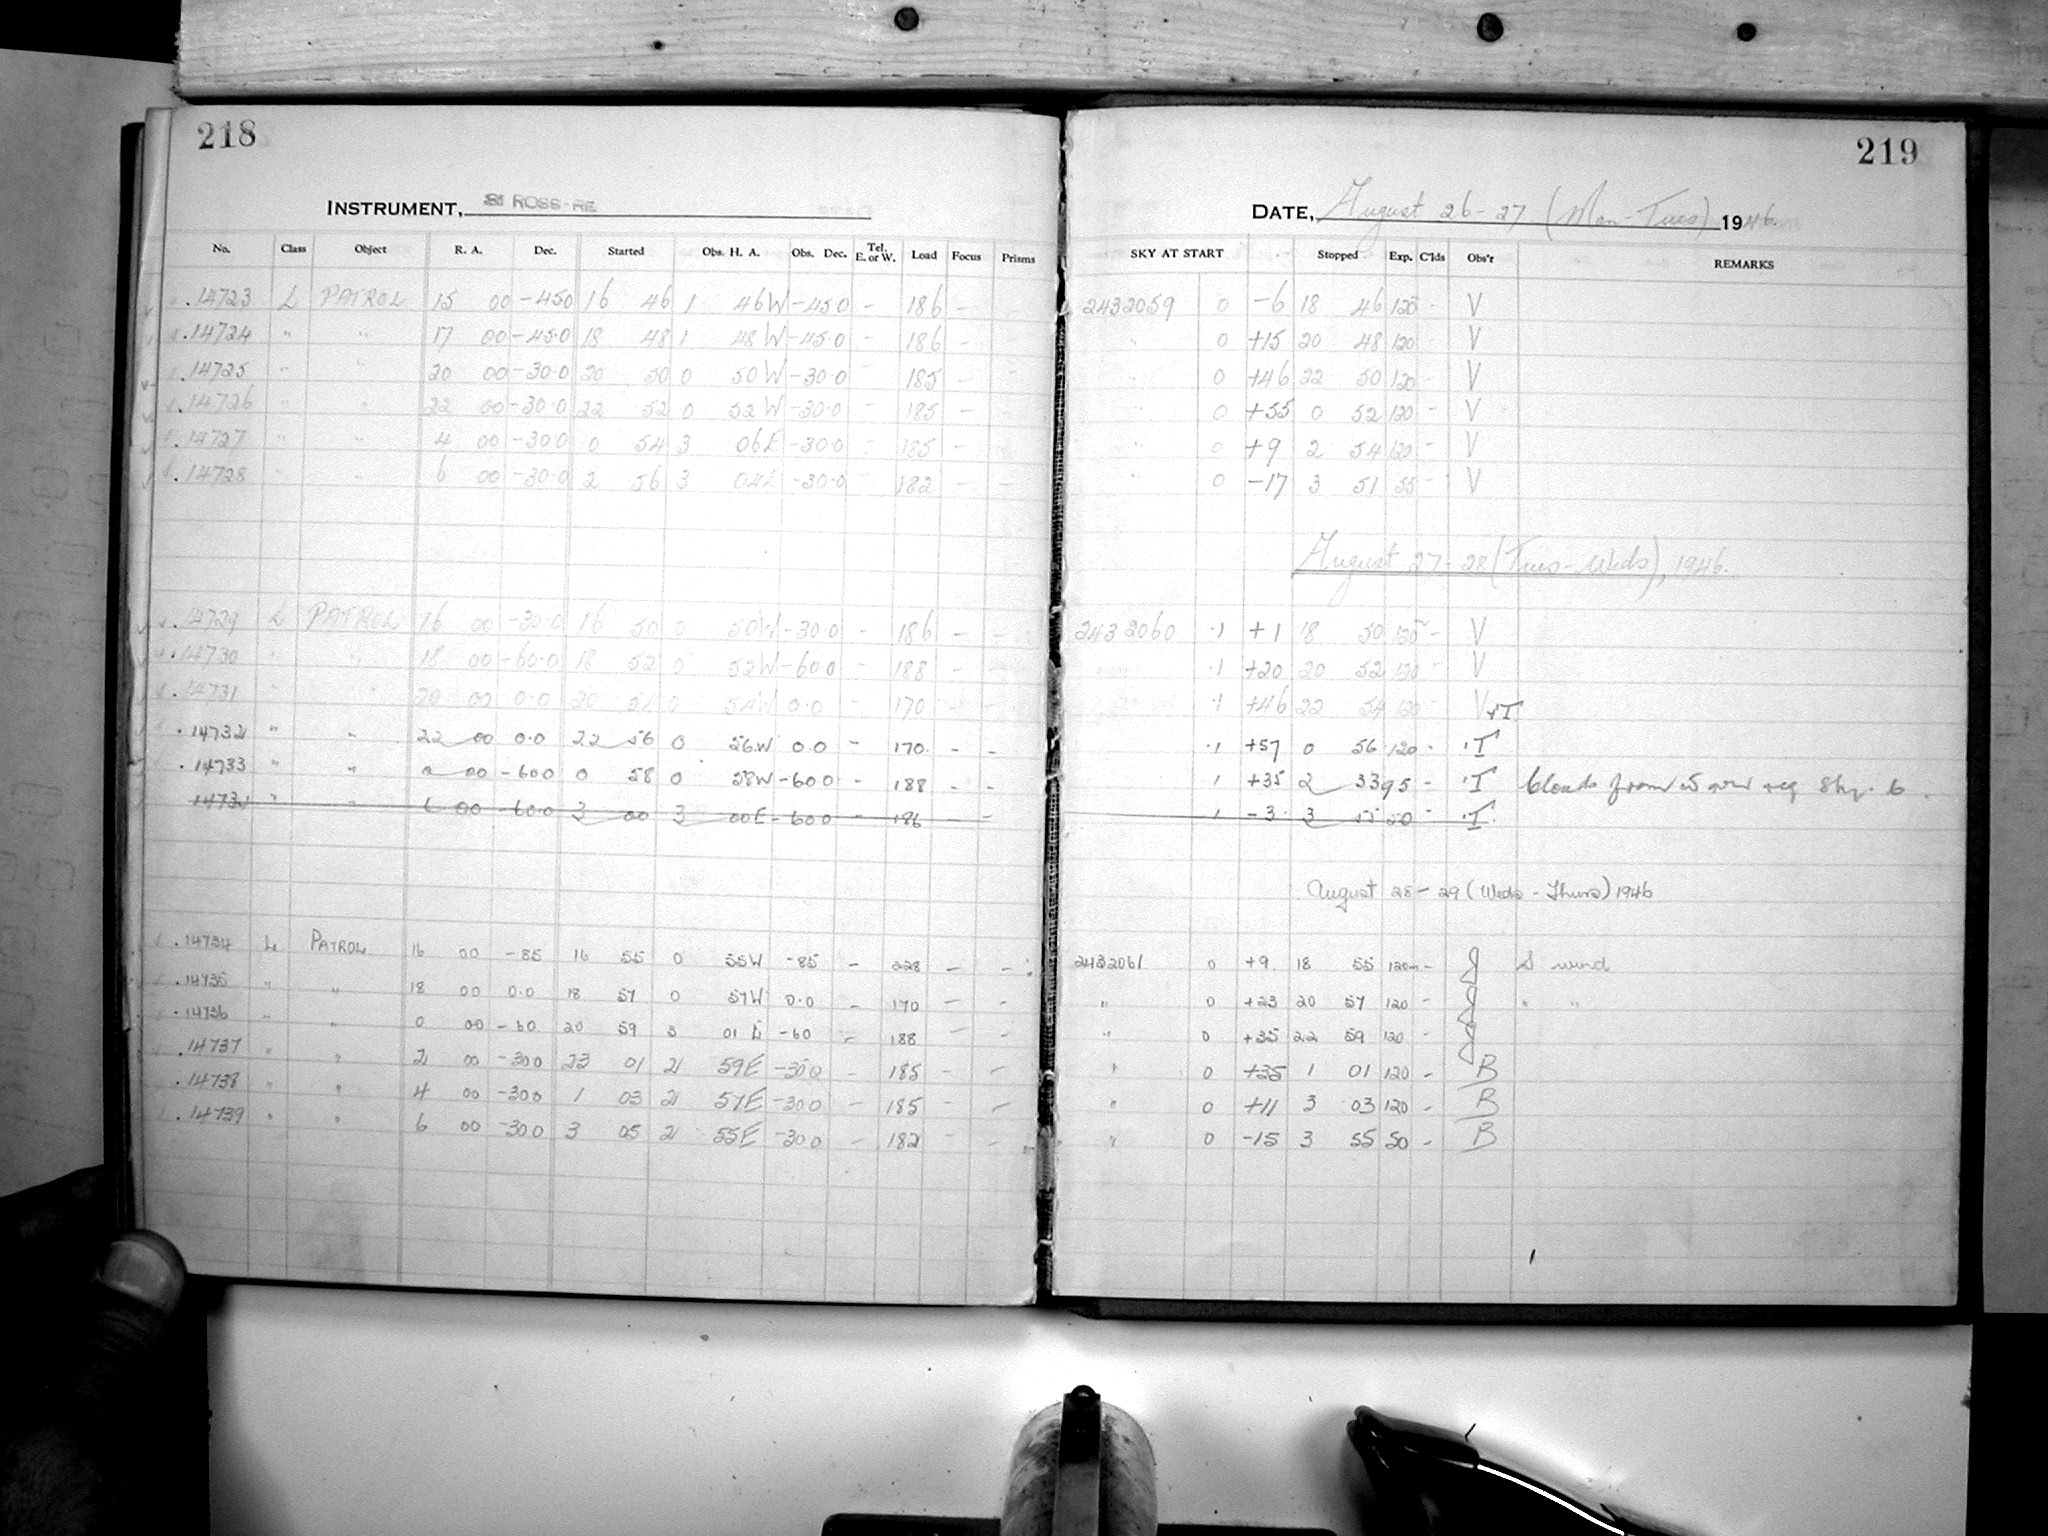 218
INSTRUMENT, ROSS-RE
No. Class Object R. A. Dec. Started Obs. H. A. Obs. Dec. Tel. E. or W. Load Focus Prisms
.14723 L PATROL 15 00 -45.0 16 46 1 46W -45.0 - 186 -
.14724 " " 17 00 -45.0 18 48 1 48W -45.0 - 186 -
.14725 " " 20 00 -30.0 20 50 0 50W -30.0 - 185 - -
.14726 " " 22 00 -30.0 22 52 0 52W -30.0 - 185 - -
.14727 " " 4 00 -30.0 0 54 3 06E -30.0 - 185 - -
.14728 " " 6 00 -30.0 2 56 3 04E -30.0 - 182 - -
.14729 L PATROL 16 00 -30.0 16 50 0 50W -30.0 - 186 - -
.14730 " " 18 00 -60.0 18 52 0 52W -60.0 - 188 - -
.14731 " " 20 00 0.0 20 54 0 54W 0.0 - 170 - -
.14732 " " 22 00 0.0 22 56 0 56W 0.0 - 170 - -
.14733 " " 2 00 -60.0 0 58 0 58W -60.0 - 188 - -
14734 " " 6 00 -60.0 3 00 3 00E -60.0 - 186 - -
.14734 L PATROL 16 00 -85 16 55 0 55W -85 - 228 - -
.14735 " " 18 00 0.0 18 57 0 57W 0.0 - 170 - -
.14736 " " 0 00 -60 20 59 3 01E -60 - 188 - -
.14737 " " 2 00 -30.0 23 01 2 59E -30.0 - 185 - -
.14738 " " 4 00 -30.0 1 03 2 57E -30.0 - 185 - -
.14739 " " 6 00 -30.0 3 05 2 55E -30.0 - 182 - -
219
DATE, August 26-27 (Mon-Tues) 1946.
SKY AT START Stopped Exp. C'lds Obs'r REMARKS
2432059 0 -6 18 46 120 - V
" 0 +15 20 48 120 - V
" 0 +46 22 50 120 - V
" 0 +55 0 52 120 - V
" 0 +9 2 54 120 - V
" 0 -17 3 51 55 - V
August 27-28 (Tues-Weds), 1946.
2432060 .1 +1 18 50 120 - V
.1 +20 20 52 120 - V
.1 +46 22 54 120 - V+T
.1 +57 0 56 120 - T
.1 +35 2 33 95 - T Clouds from
.1 -3 3 55 - T
August 28-29 (Weds - Thurs) 1946
2432061 0 +9 18 55 120m - J S wind
" 0 +23 20 57 120 - J " "
" 0 +35 22 59 120 - J
" 0 +35 1 01 120 - B
" 0 +11 3 03 120 - B
" 0 -15 3 55 50 - B